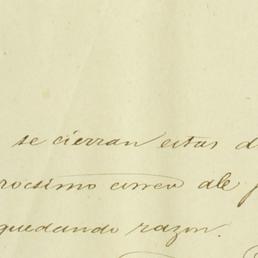 se cierran estas d
rocsimo correo de
quedando razon.